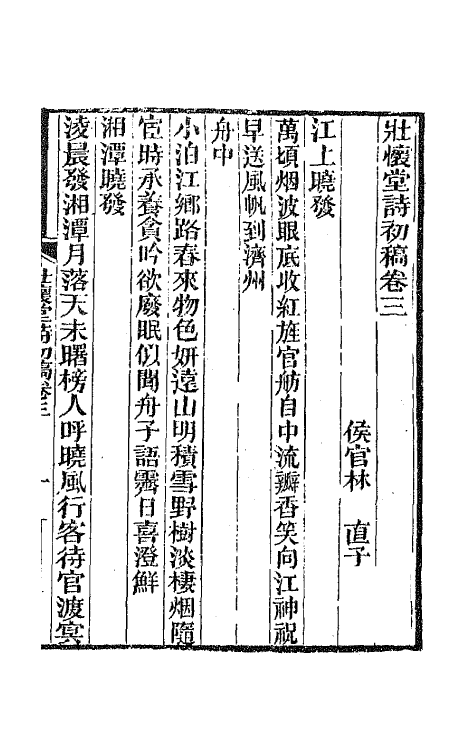 壯懷堂詩初稿卷三
侯官林　直子
江上曉發
萬頃烟波眼底收紅旌官舫自中流瓣香笑向江神祝
早送風帆到濟州
舟中
小泊江鄉路春來物色妍遠山明積雪野樹淡棲烟隨
宦時承養貪吟欲廢眠似聞舟子語霽日喜澄鮮
湘潭曉發
淩晨發湘潭月落天未曙榜人呼曉風行客待官渡寞
壯懷堂詩初稿卷三
一